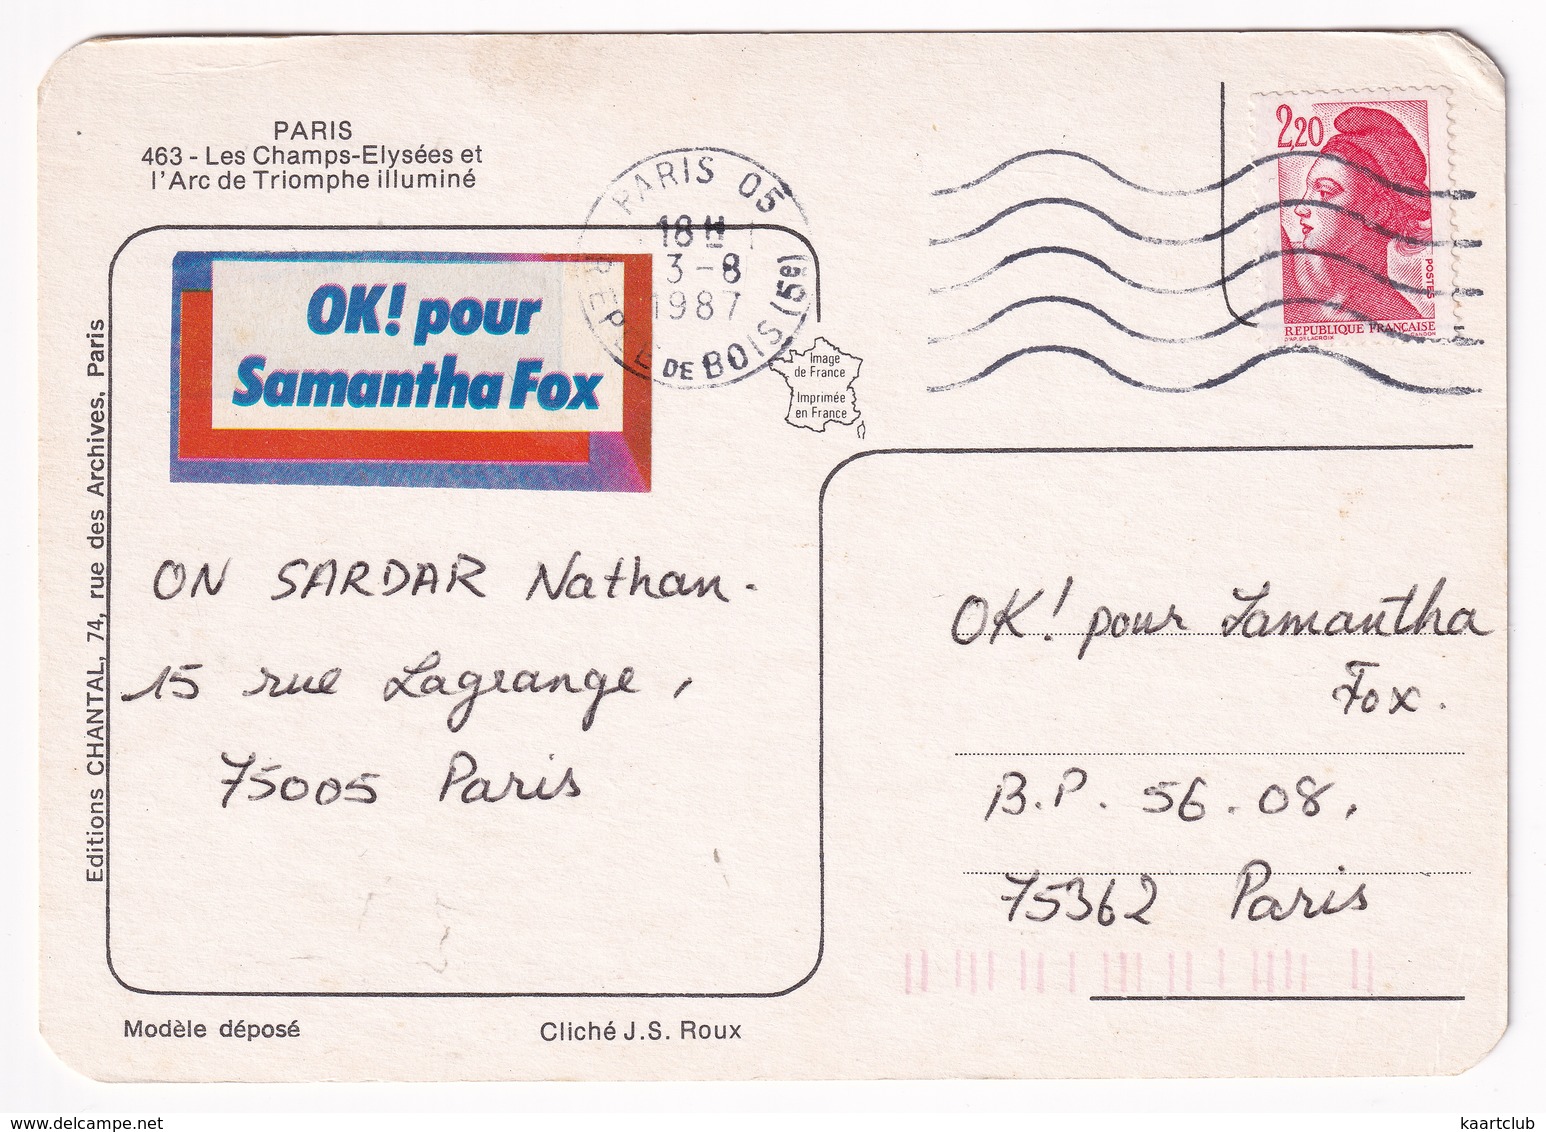 PARIS
463 - Les Champs-Elysées et
l'Arc de Triomphe illuminé
OK! pour
Samantha Fox
PARIS 05
18 H
3 - 8
1987
DE BOIS (5e)
Image
de France
Imprimée
en France
2,20
POSTES
REPUBLIQUE FRANÇAISE
D'AP. DELACROIX GANDON
Editions CHANTAL, 74, rue des Archives, Paris
ON SARDAR Nathan.
15 rue Lagrange,
75005 Paris
OK! pour Samantha
Fox.
B.P. 56.08.
75362 Paris
Modèle déposé
Cliché J.S. Roux
www.delcampe.net
kaartclub